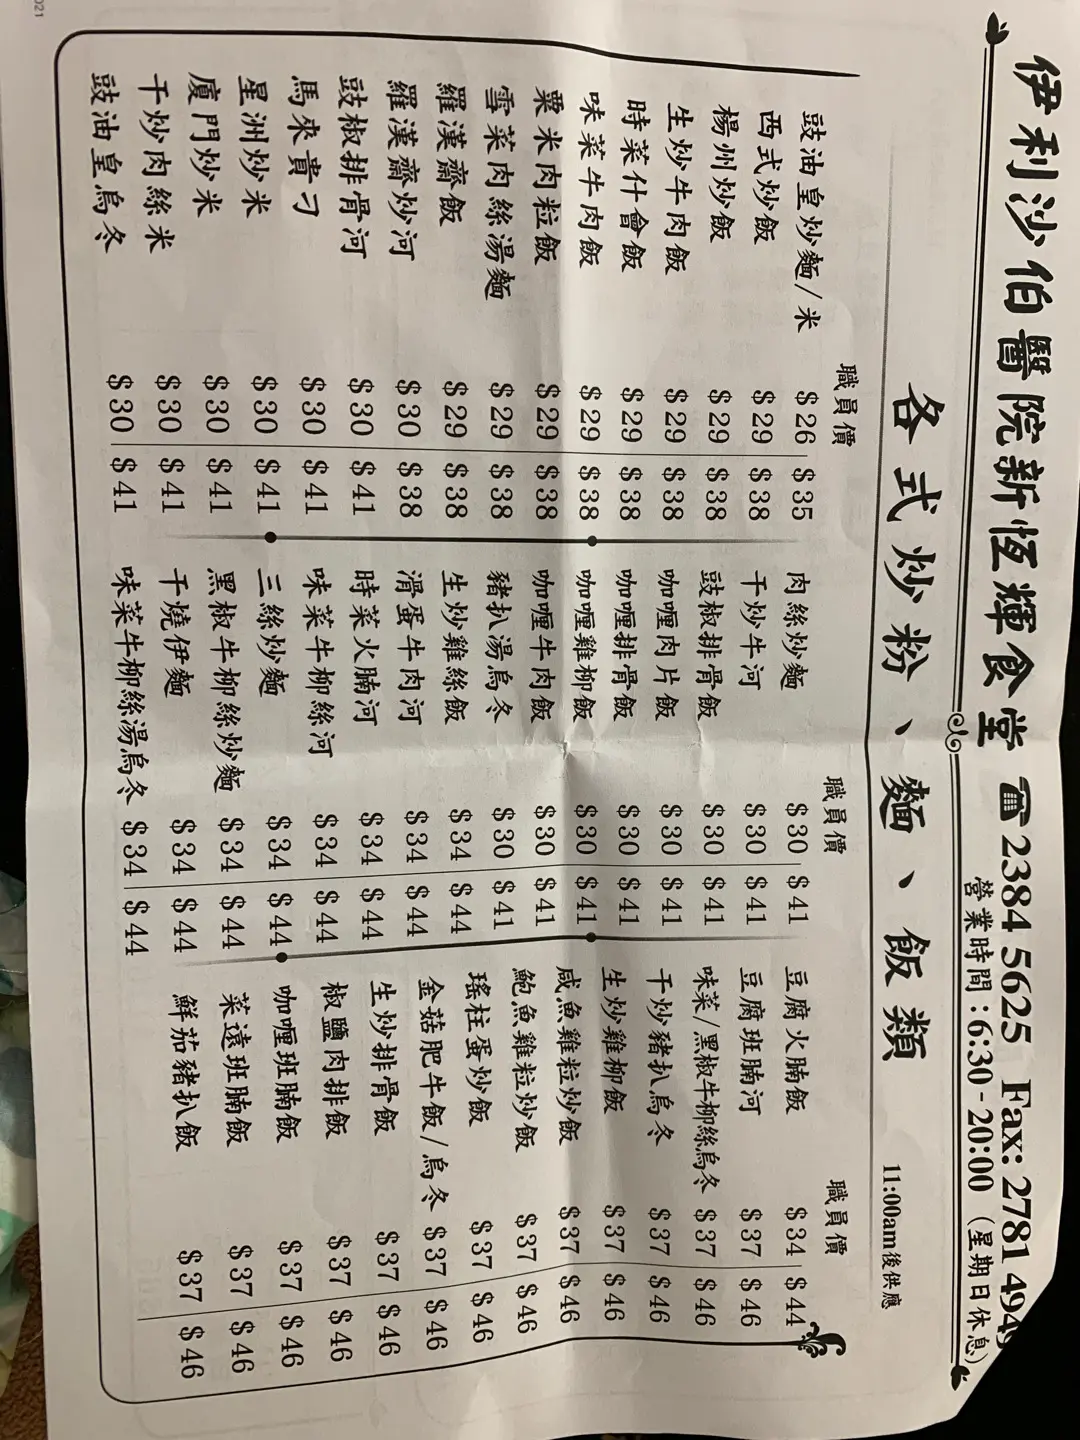 伊利沙伯醫院新恆輝食堂 ☎2384 5625 Fax: 2781 494
營業時間:6:30-20:00 (星期日休息)
各式炒粉、麵、飯類 11:00am後供應
職員價
豉油皇炒麵/米 $26 $35
西式炒飯 $29 $38
楊州炒飯 $29 $38
生炒牛肉飯 $29 $38
時菜什會飯 $29 $38
味菜牛肉飯 $29 $38
粟米肉粒飯 $29 $38
雪菜肉絲湯麵 $29 $38
羅漢齋飯 $29 $38
羅漢齋炒河 $30 $38
豉椒排骨河 $30 $41
馬來貴刁 $30 $41
星洲炒米 $30 $41
廈門炒米 $30 $41
干炒肉絲米 $30 $41
豉油皇烏冬 $30 $41
職員價
肉絲炒麵 $30 $41
干炒牛河 $30 $41
豉椒排骨飯 $30 $41
咖喱肉片飯 $30 $41
咖喱排骨飯 $30 $41
咖喱雞柳飯 $30 $41
咖喱牛肉飯 $30 $41
豬扒湯烏冬 $30 $41
生炒雞絲飯 $34 $44
滑蛋牛肉河 $34 $44
時菜火腩河 $34 $44
味菜牛柳絲河 $34 $44
三絲炒麵 $34 $44
黑椒牛柳絲炒麵 $34 $44
干燒伊麵 $34 $44
味菜牛柳絲湯烏冬 $34 $44
職員價
豆腐火腩飯 $34 $44
豆腐班腩河 $37 $46
味菜/黑椒牛柳絲烏冬 $37 $46
干炒豬扒烏冬 $37 $46
生炒雞柳飯 $37 $46
咸魚雞粒炒飯 $37 $46
鮑魚雞粒炒飯 $37 $46
瑤柱蛋炒飯 $37 $46
金菇肥牛飯/烏冬 $37 $46
生炒排骨飯 $37 $46
椒鹽肉排飯 $37 $46
咖喱班腩飯 $37 $46
菜遠班腩飯 $37 $46
鮮茄豬扒飯 $37 $46